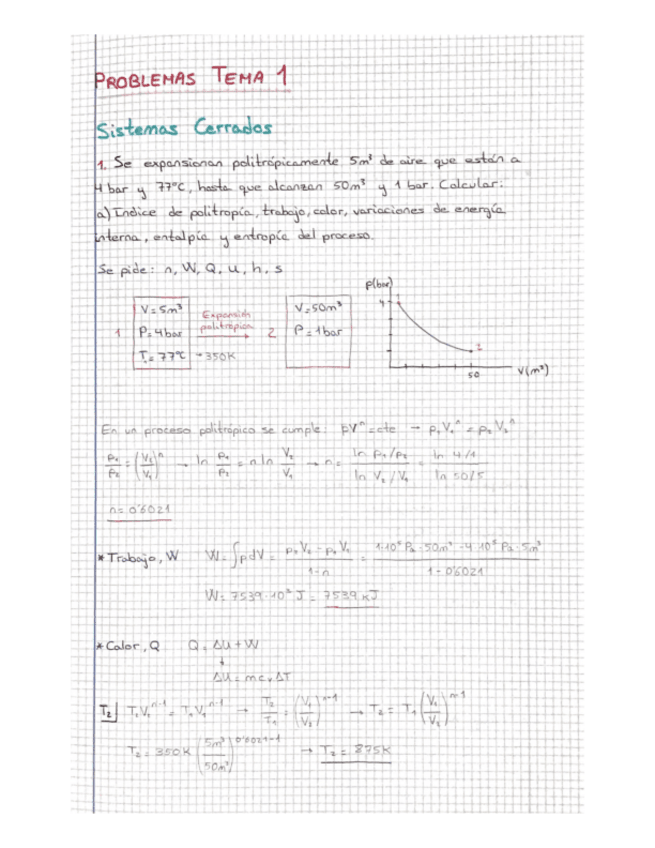 PROBLEMAS TEMA 1
Sistemas Cerrados
1. Se expansionan politrópicamente 5m³ de aire que están a
4 bar y 77ºC, hasta que alcanzan 50m³ y 1 bar. Calcular:
a) Indice de politropía, trabajo, calor, variaciones de energía
interna, entalpía y entropía del proceso.
Se pide: n, W, Q, u, h, s
1 V=5m³ P=4bar T=77ºC → 350K
Expansión politrópica
2 V=50m³ P=1bar
P(bar) 4 1 2 50 V(m³)
En un proceso politrópico se cumple: pVⁿ=cte → p₁V₁ⁿ = p₂V₂ⁿ
p₁/p₂ = (V₂/V₁)ⁿ → ln p₁/p₂ = n ln V₂/V₁ → n = ln p₁/p₂ / ln V₂/V₁ = ln 4/1 / ln 50/5
n= 0'6021
* Trabajo, W W= ∫pdV = p₂V₂ - p₁V₁ / 1-n = 1·10⁵Pa·50m³ - 4·10⁵Pa·5m³ / 1-0'6021
W= 7539·10³ J = 7539 kJ
* Calor, Q Q= ΔU+W
↓
ΔU= mcᵥΔT
T₂| → T₂/T₁ = (V₁/V₂)ⁿ⁻¹ → T₂= T₁(V₁/V₂)ⁿ⁻¹
T₂= 350K (5m³/50m³)^0'6021-1 → T₂= 875K